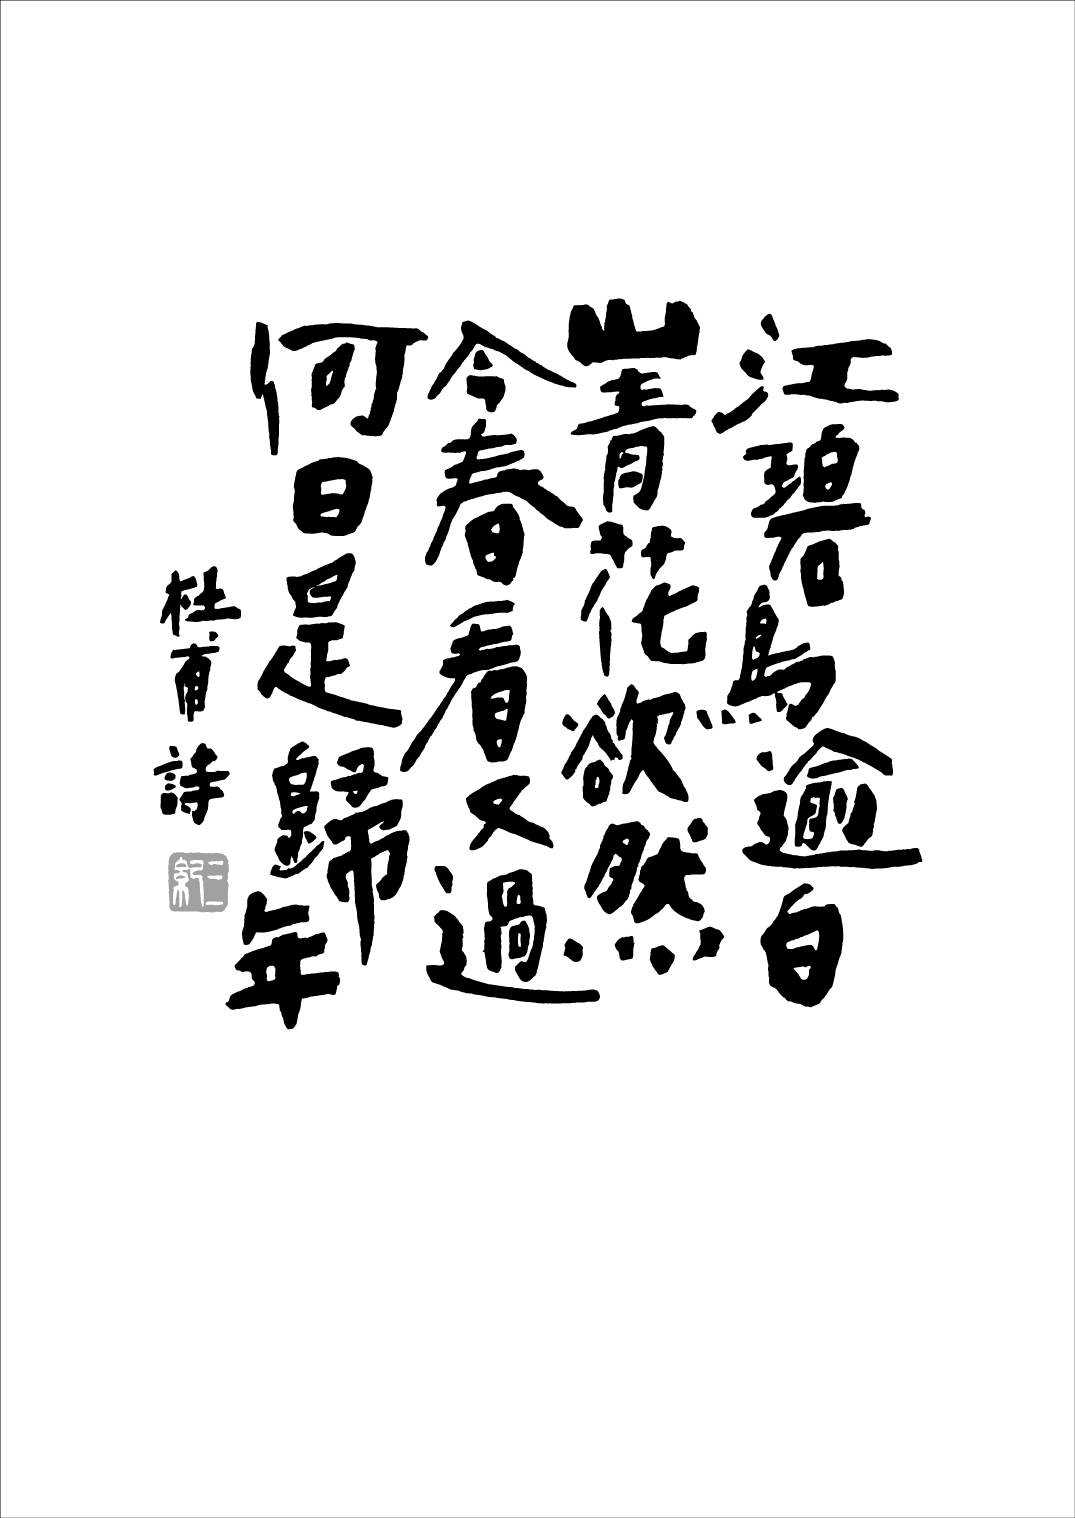 江碧鳥逾白
山青花欲然
今春看又過
何日是歸年
杜甫詩